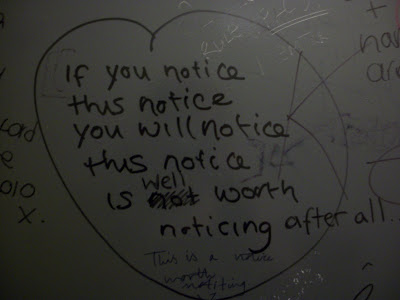 If you notice
this notice
you will notice
this notice
is well worth
noticing after all..
This is a notice
worth
notiting
x.